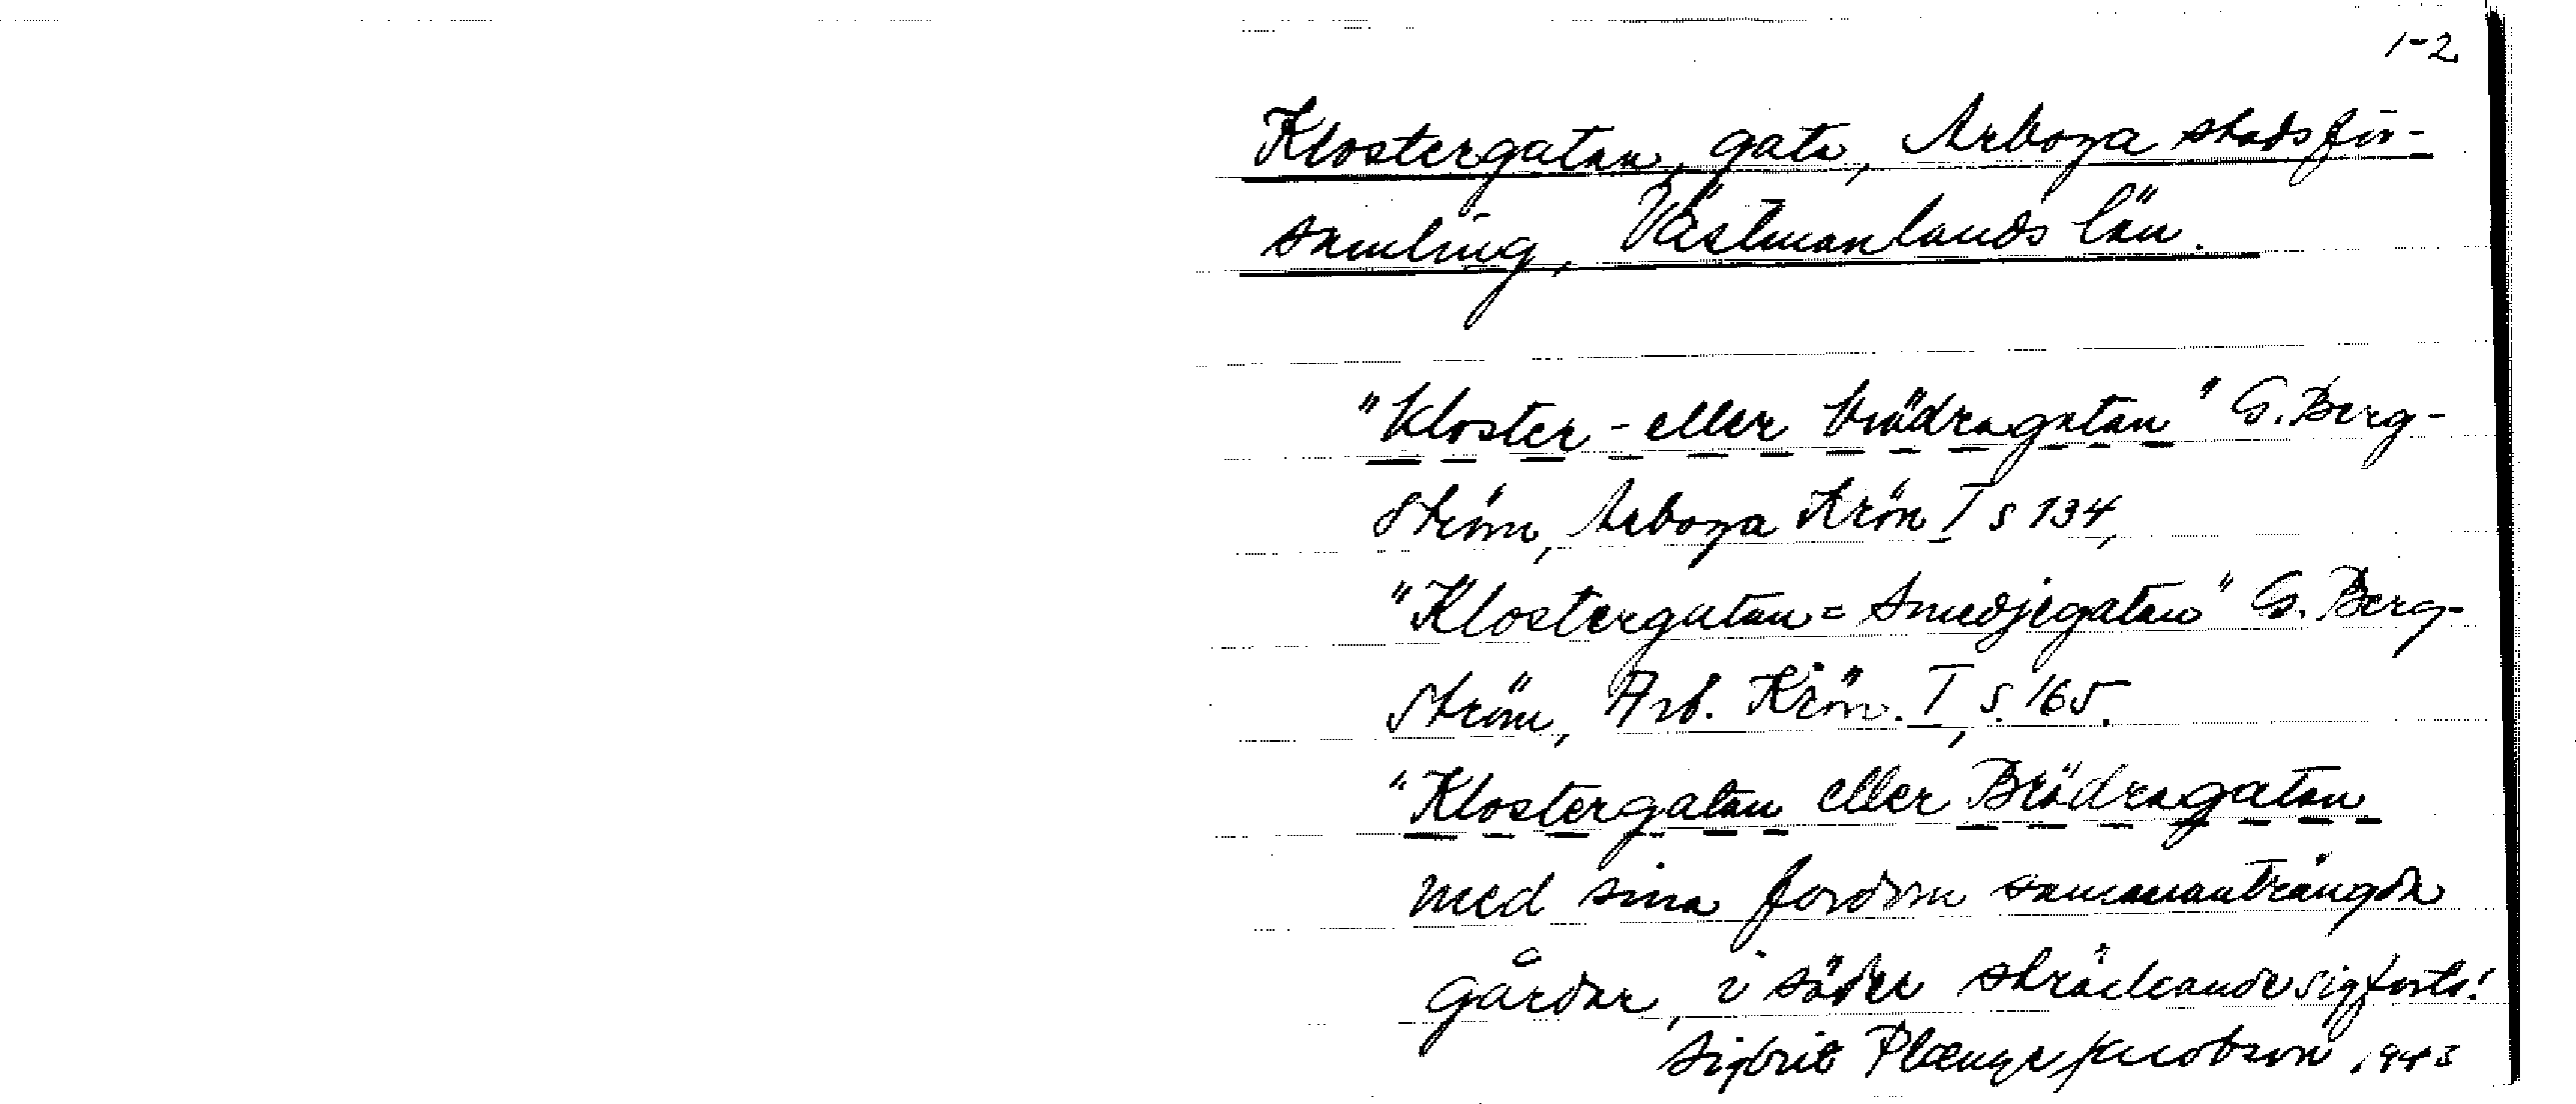 1-2
Klostergatan, gata, Arboga stadsför-
samling, Västmanlands län.
"Kloster- eller brödragatan" G. Berg-
ström, Arboga Krön I s 134,
"Klostergatan = Smedjegatan" G. Berg-
ström, Arb. Krön. I, s. 165.
"Klostergatan eller Brödragatan
med sina fordom sammanträngda
gårdar, i söder sträckande sig forts!
Sigbrit Plænge Jacobson 1943